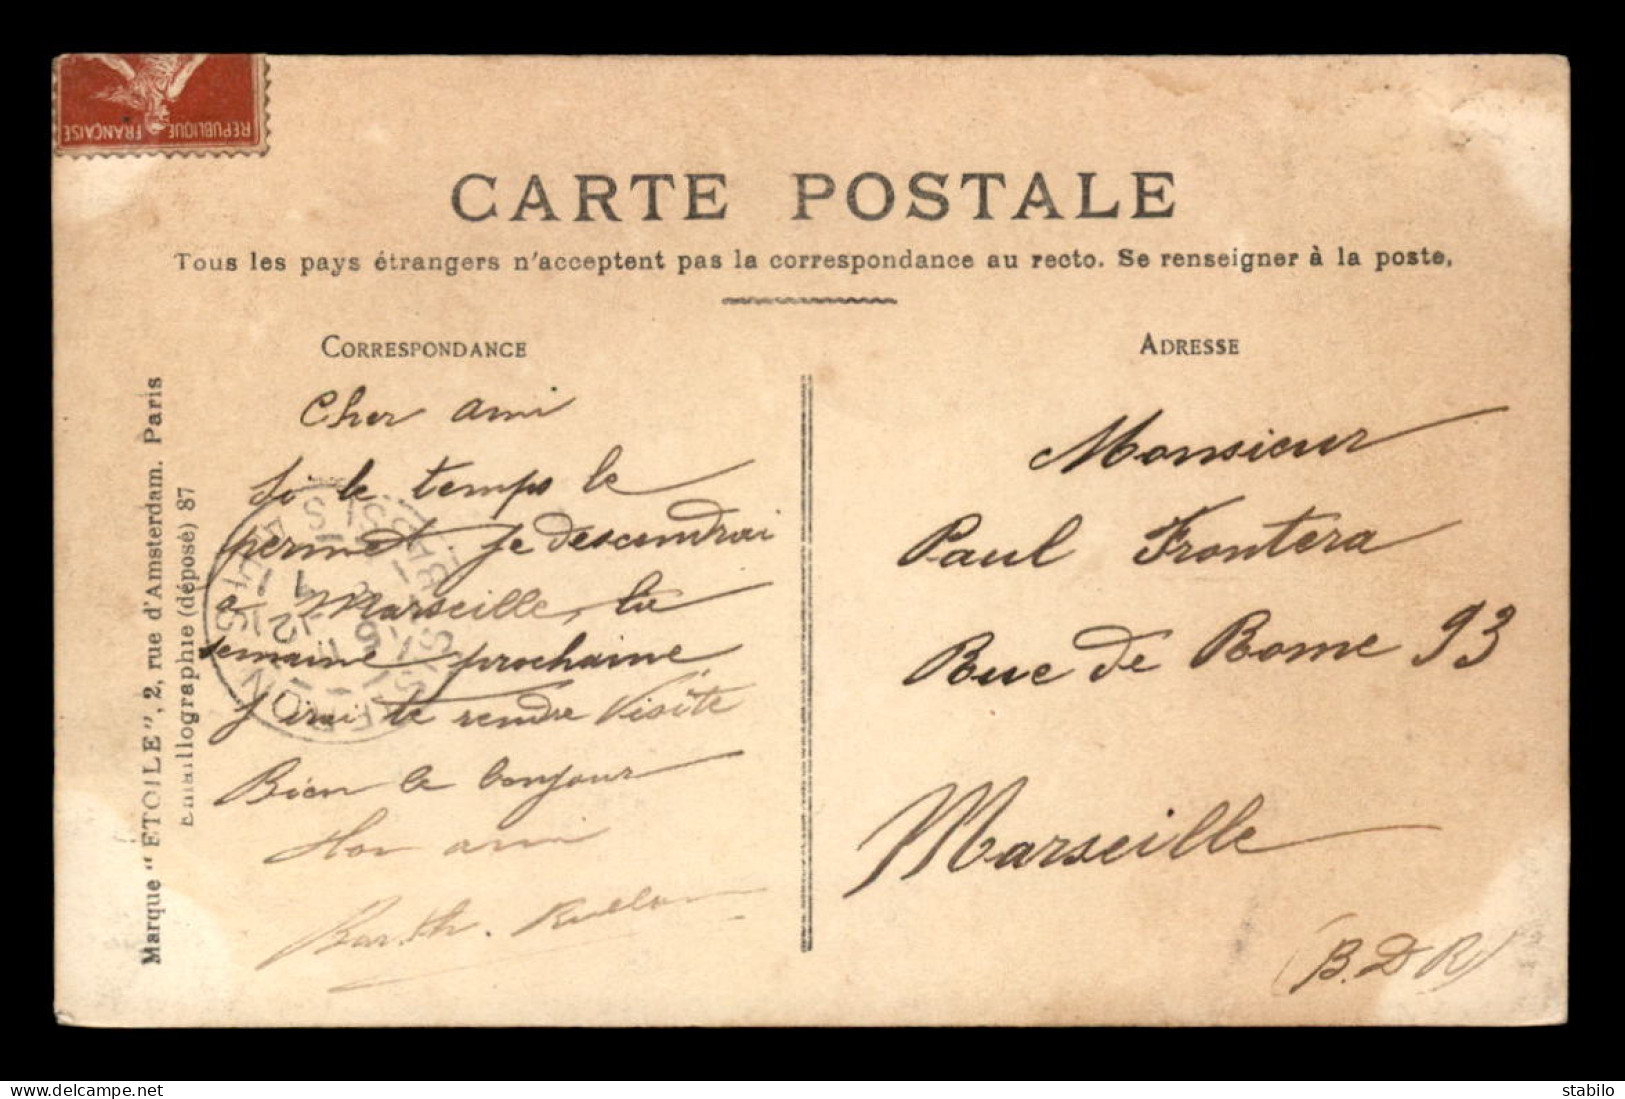 RÉPUBLIQUE FRANÇAISE
CARTE POSTALE
Tous les pays étrangers n'acceptent pas la correspondance au recto. Se renseigner à la poste.
CORRESPONDANCE
Cher ami
Si le temps le
permet je descendrai
a Marseille, la
semaine prochaine
J irai te rendre Visite
Bien le bonjour
Ton ami
Barth.
ADRESSE
Monsieur
Paul Frontera
Rue de Rome 93
Marseille
(B.D R)
Marque "ETOILE", 2, rue d'Amsterdam. Paris
Emaillographie (déposé) 87
delcampe.net
stabilo